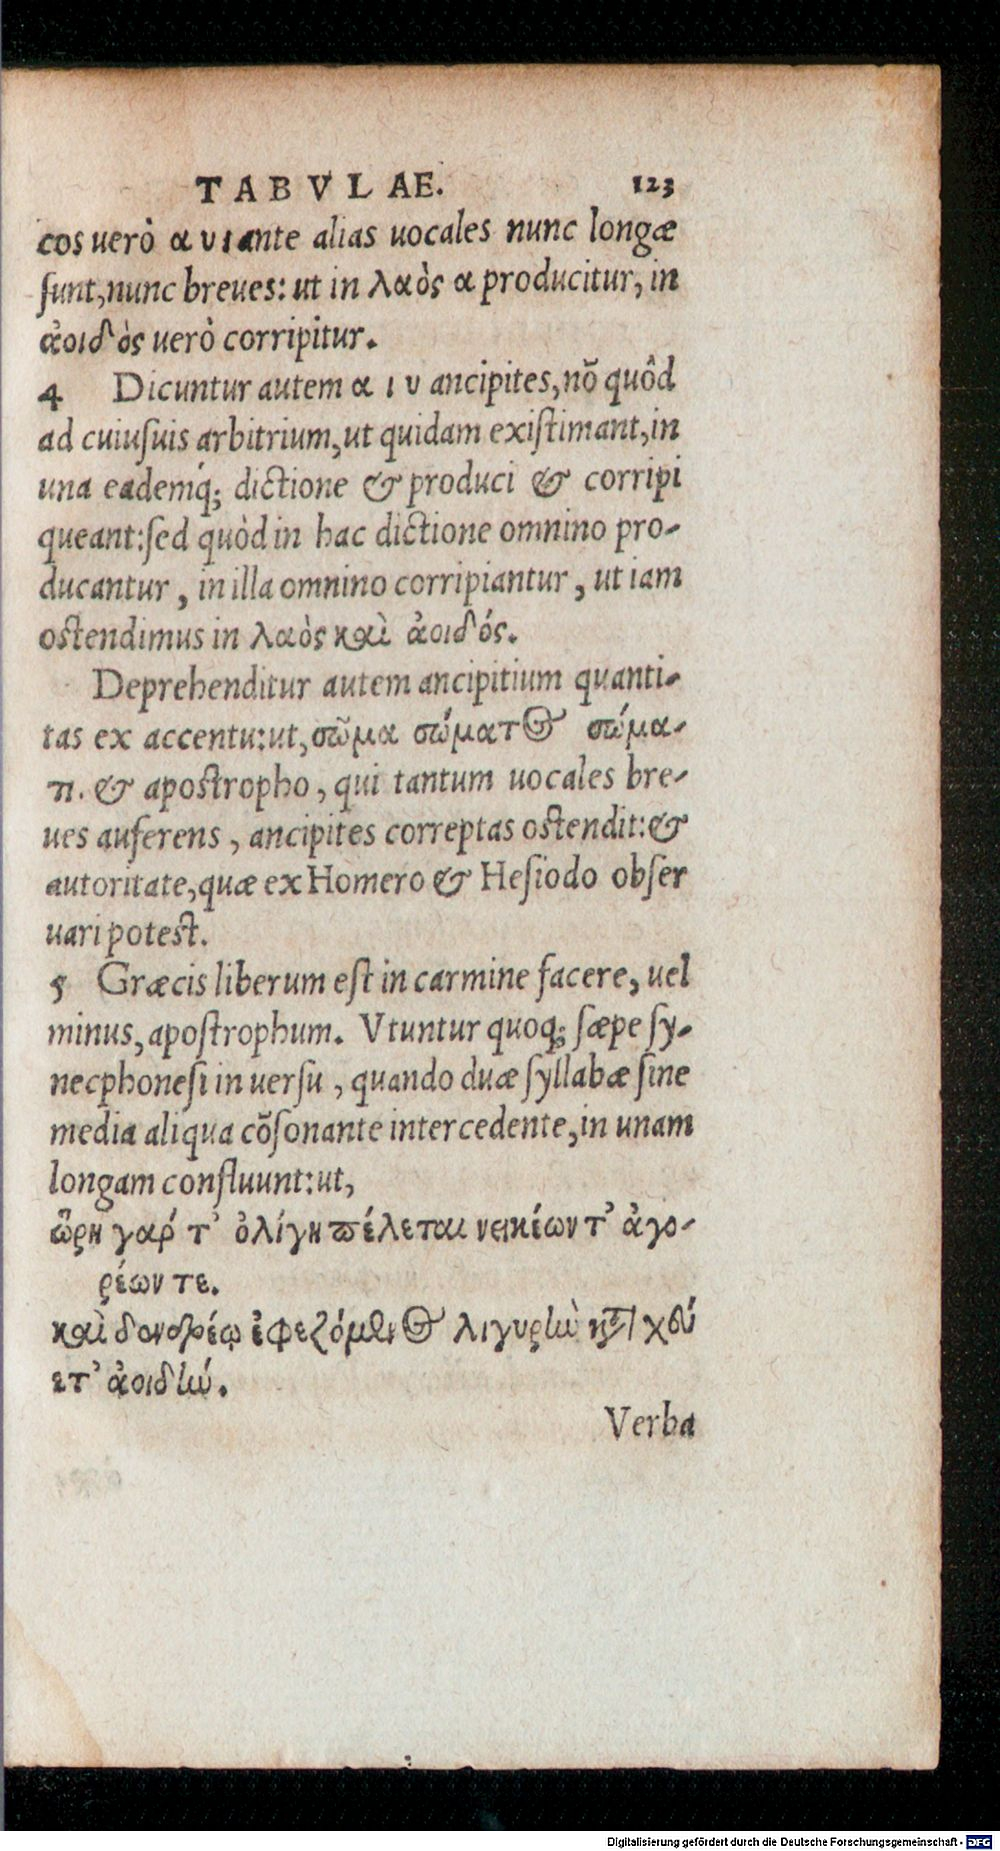 TABVLAE. 123
cos uerò α υ ι ante alias uocales nunc longæ
ſunt, nunc breues: ut in λαὸς α producitur, in
ἀοιδὸς uerò corripitur.
4 Dicuntur autem α ι υ ancipites, nō quòd
ad cuiuſuis arbitrium, ut quidam exiſtimant, in
una eademq́; dictione & produci & corripi
queant: ſed quòd in hac dictione omnino pro-
ducantur, in illa omnino corripiantur, ut iam
oſtendimus in λαὸς καὶ ἀοιδός.
Deprehenditur autem ancipitium quanti-
tas ex accentu: ut, σῶμα σώματος σώμα-
τι. & apoſtropho, qui tantum uocales bre-
ues auferens, ancipites correptas oſtendit: &
autoritate, quæ ex Homero & Heſiodo obſer
uari poteſt.
5 Græcis liberum eſt in carmine facere, uel
minus, apoſtrophum. Vtuntur quoq; ſæpe ſy-
necphoneſi in uerſu, quando duæ ſyllabæ ſine
media aliqua cōſonante intercedente, in unam
longam confluunt: ut,
ὥρη γαρ́ τ’ ὀλίγη πέλεται νεικέων τ’ ἀγο-
ρέων τε.
καὶ δενδρέῳ ἐφεζόμενος λιγυρὴν καταχεύ
ετ’ ἀοιδήν.
Verba
Digitalisierung gefördert durch die Deutsche Forschungsgemeinschaft - DFG